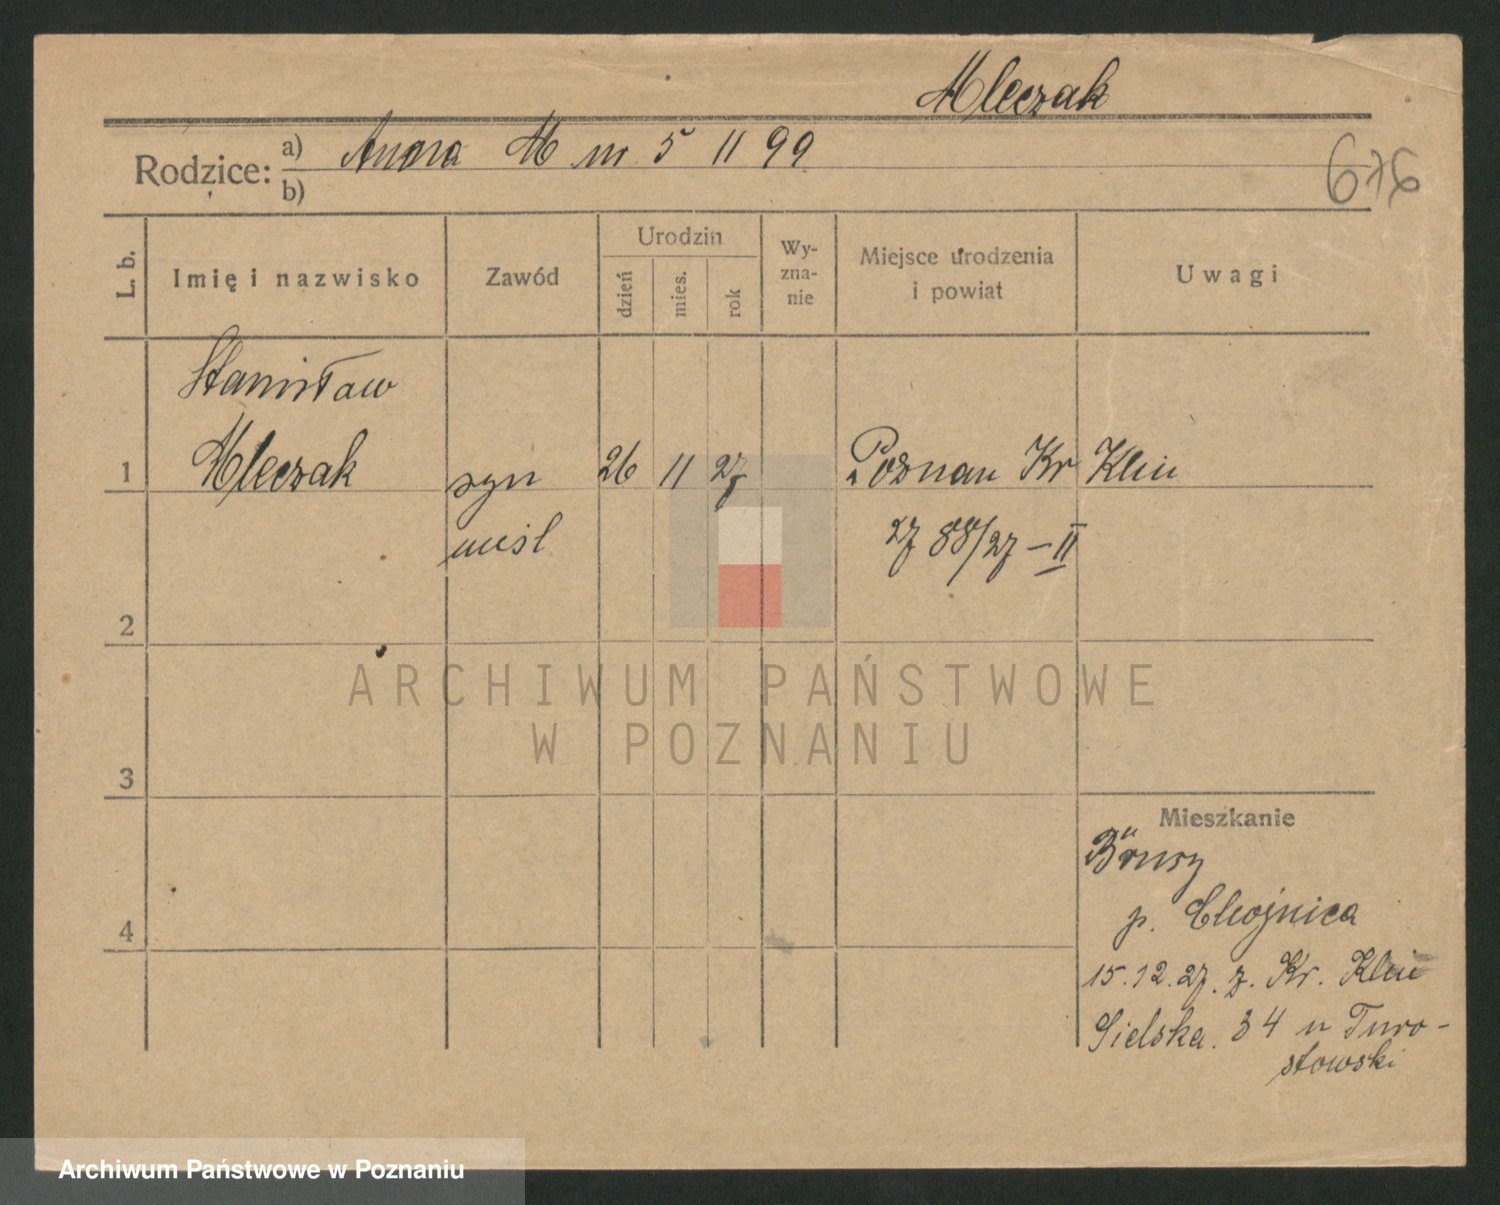 Mleczak
Rodzice: a) Anna M nr 5 11 99
b)
676
L. b.
Imię i nazwisko
Zawód
Urodzin
dzień
mies.
rok
Wy-
zna-
nie
Miejsce urodzenia
i powiat
Uwagi
Stanisław
1 Mleczak syn 26 11 27 Poznan Kr Klin
nieśl 27 88/27 - II
2
3
4
Mieszkanie
Brusy
p. Chojnica
15.12.27. z. Kr. Klin
Sielska. 34 u Turo-
stowski
ARCHIWUM PAŃSTWOWE
W POZNANIU
Archiwum Państwowe w Poznaniu